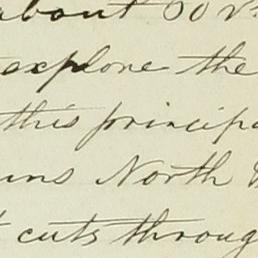 about 60
explore the
this principa
uns North
cuts throug